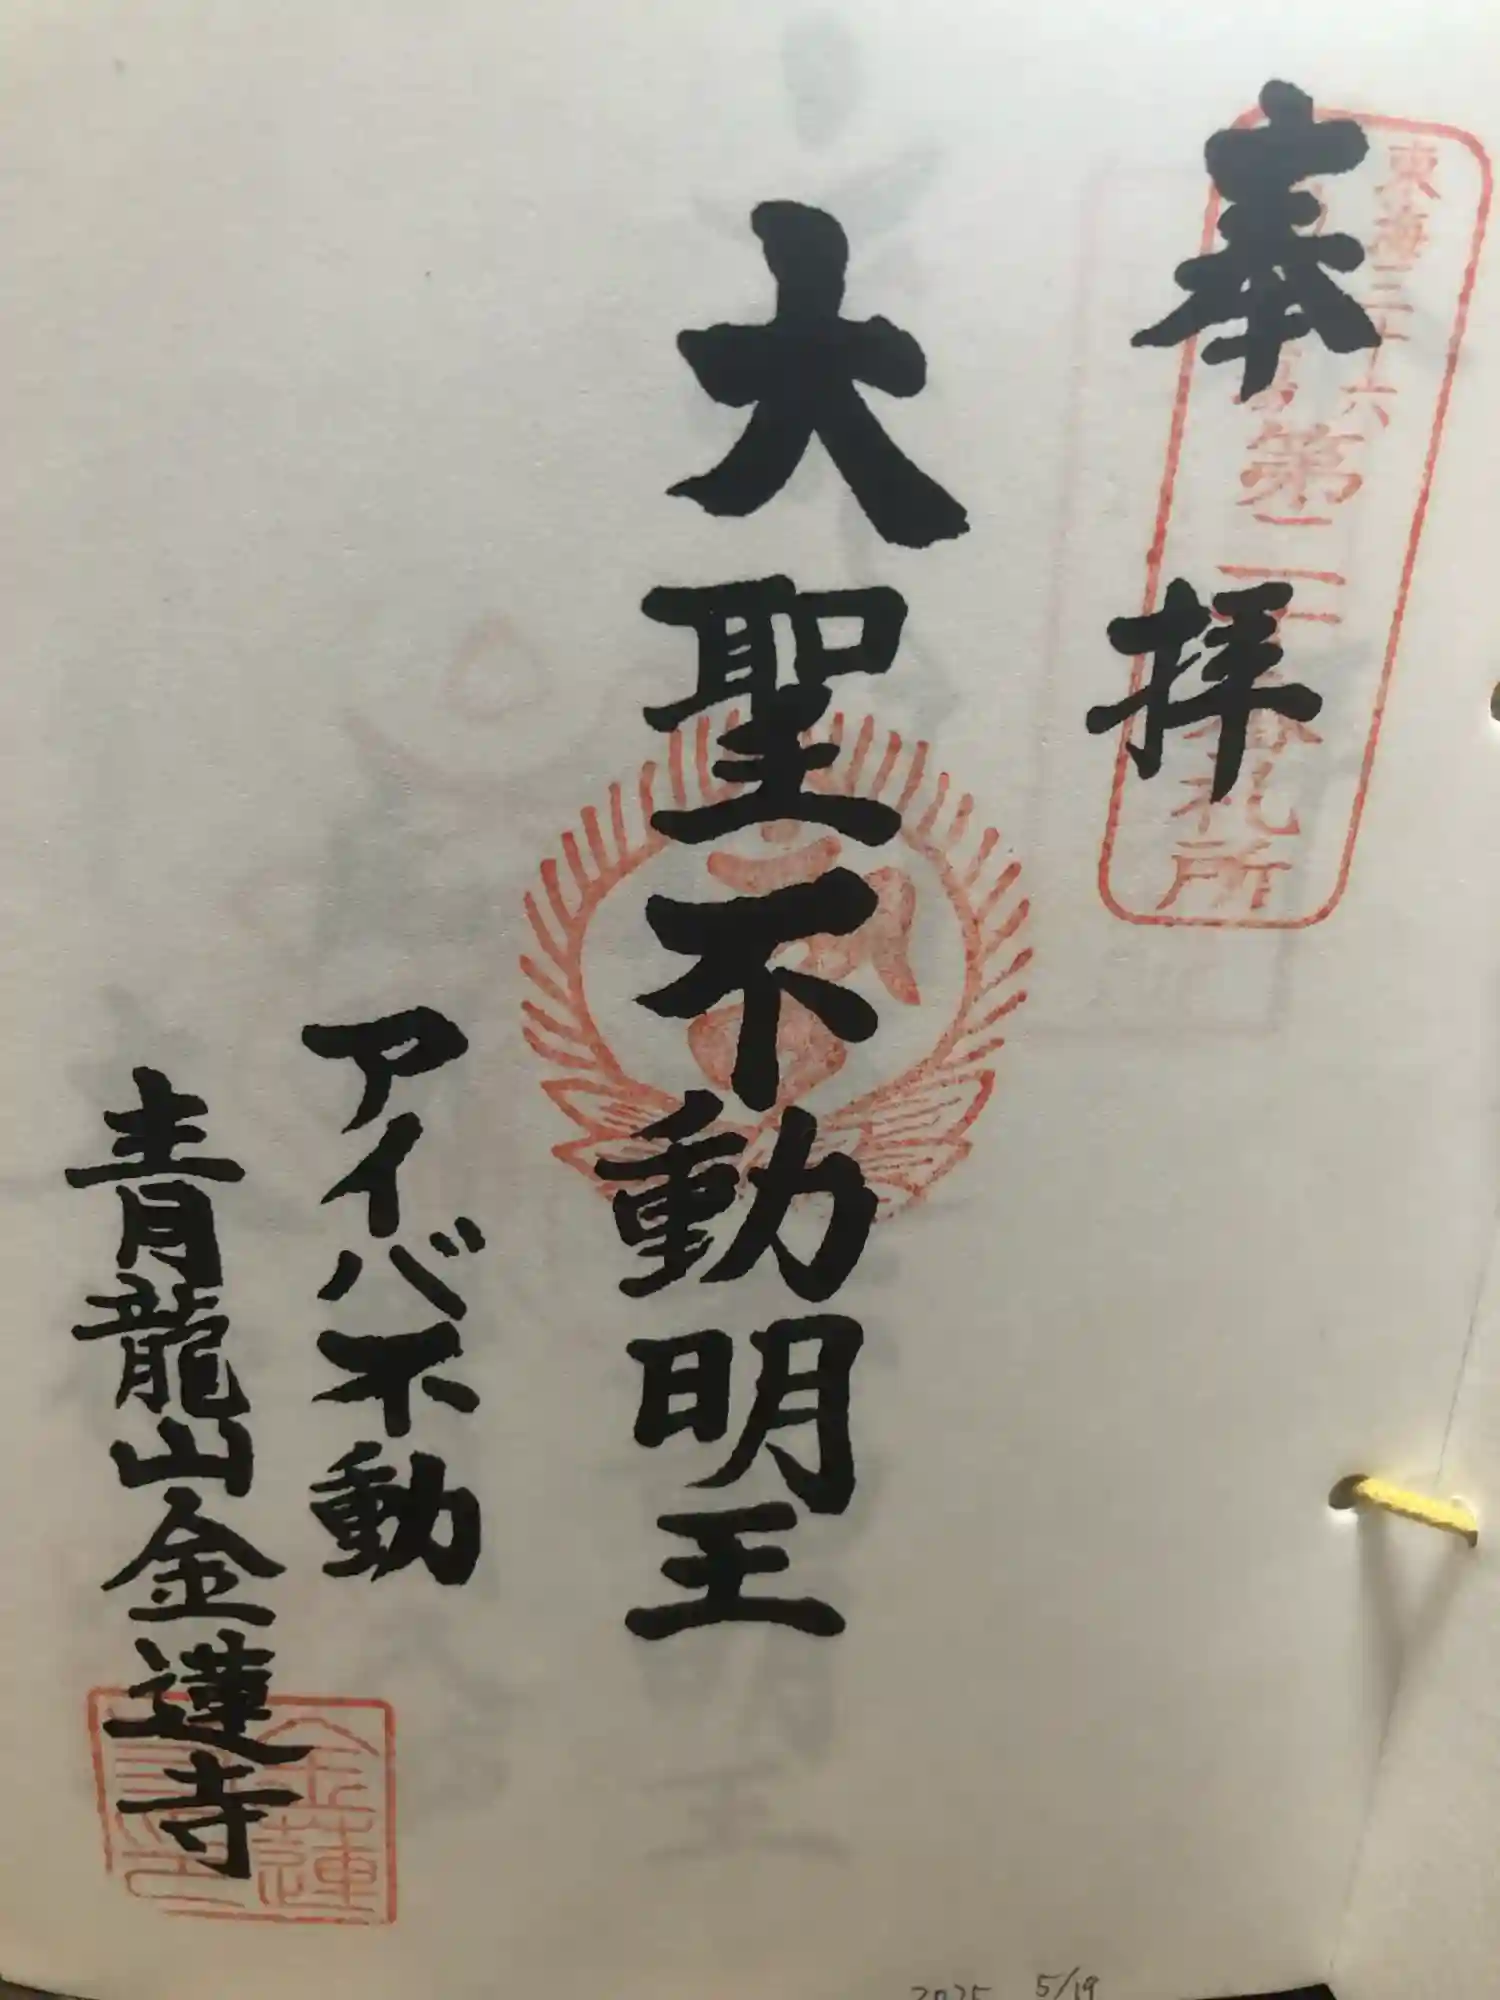 奉拝
東海三十六
第二十番札所
大聖不動明王
アイバ不動
青龍山金蓮寺
金蓮
2025 5/19